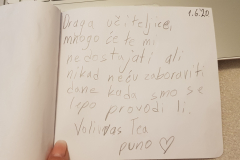 1.6.'20
Draga učiteljice,
mnogo ćete mi
nedostajati ali
nikad neću zaboraviti
dane kada smo se
lepo provodi li.
Voli vas Tea
puno ♡